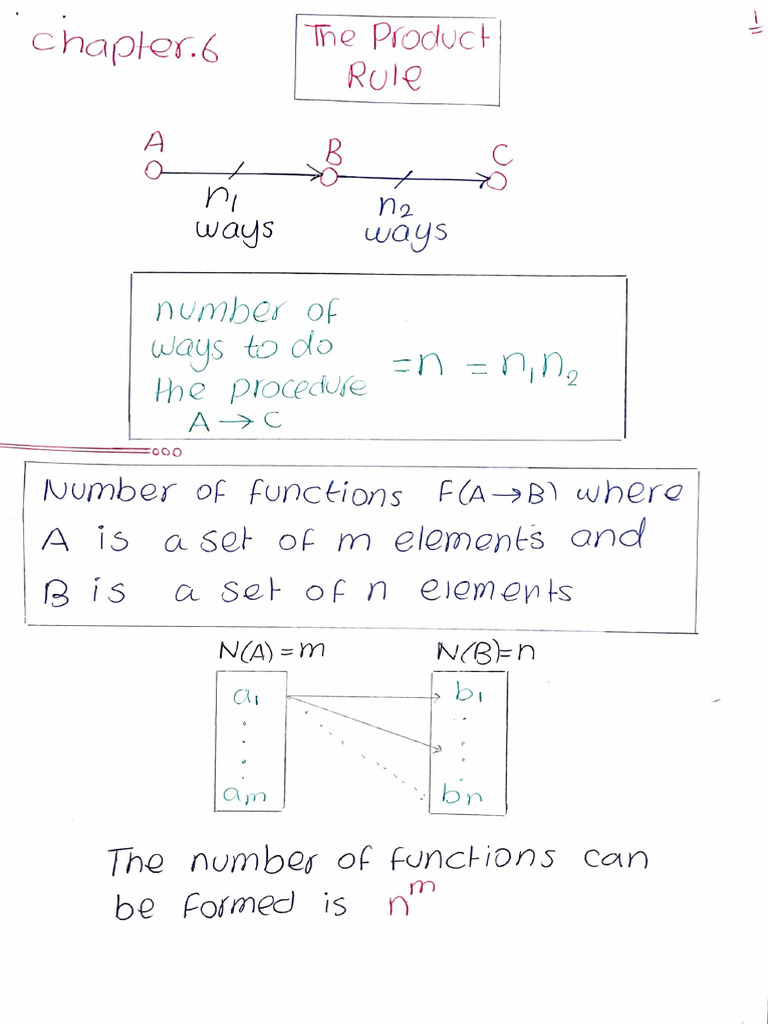 1
chapter.6
The Product
Rule
A B C
n₁ n₂
ways ways
number of
ways to do
the procedure = n = n₁n₂
A → C
Number of functions F(A→B) where
A is a set of m elements and
B is a set of n elements
N(A) = m N(B)=n
a₁ b₁
aₘ bₙ
The number of functions can
be formed is nᵐ